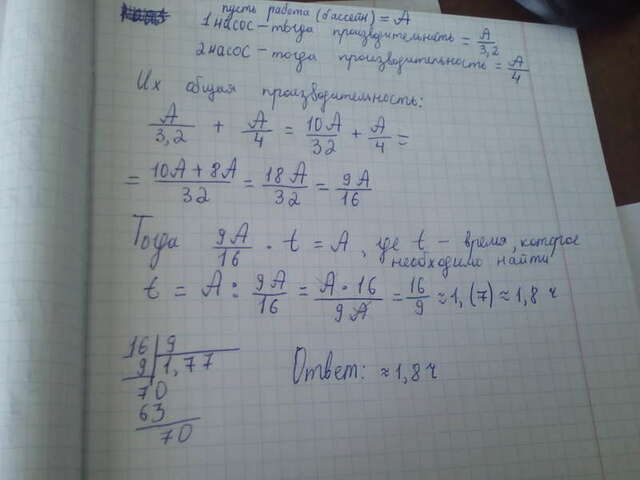 пусть работа (бассейн) = A
1 насос - тогда производительность = A/3,2
2 насос - тогда производительность = A/4
Их общая производительность:
A/3,2 + A/4 = 10A/32 + A/4 =
= 10A + 8A/32 = 18A/32 = 9A/16
Тогда 9A/16 · t = A, где t - время, которое
необходимо найти
t = A : 9A/16 = A · 16/9A = 16/9 ≈ 1,(7) ≈ 1,8 ч
16 | 9
9 | 1,77
70
63
70
Ответ: ≈ 1,8 ч